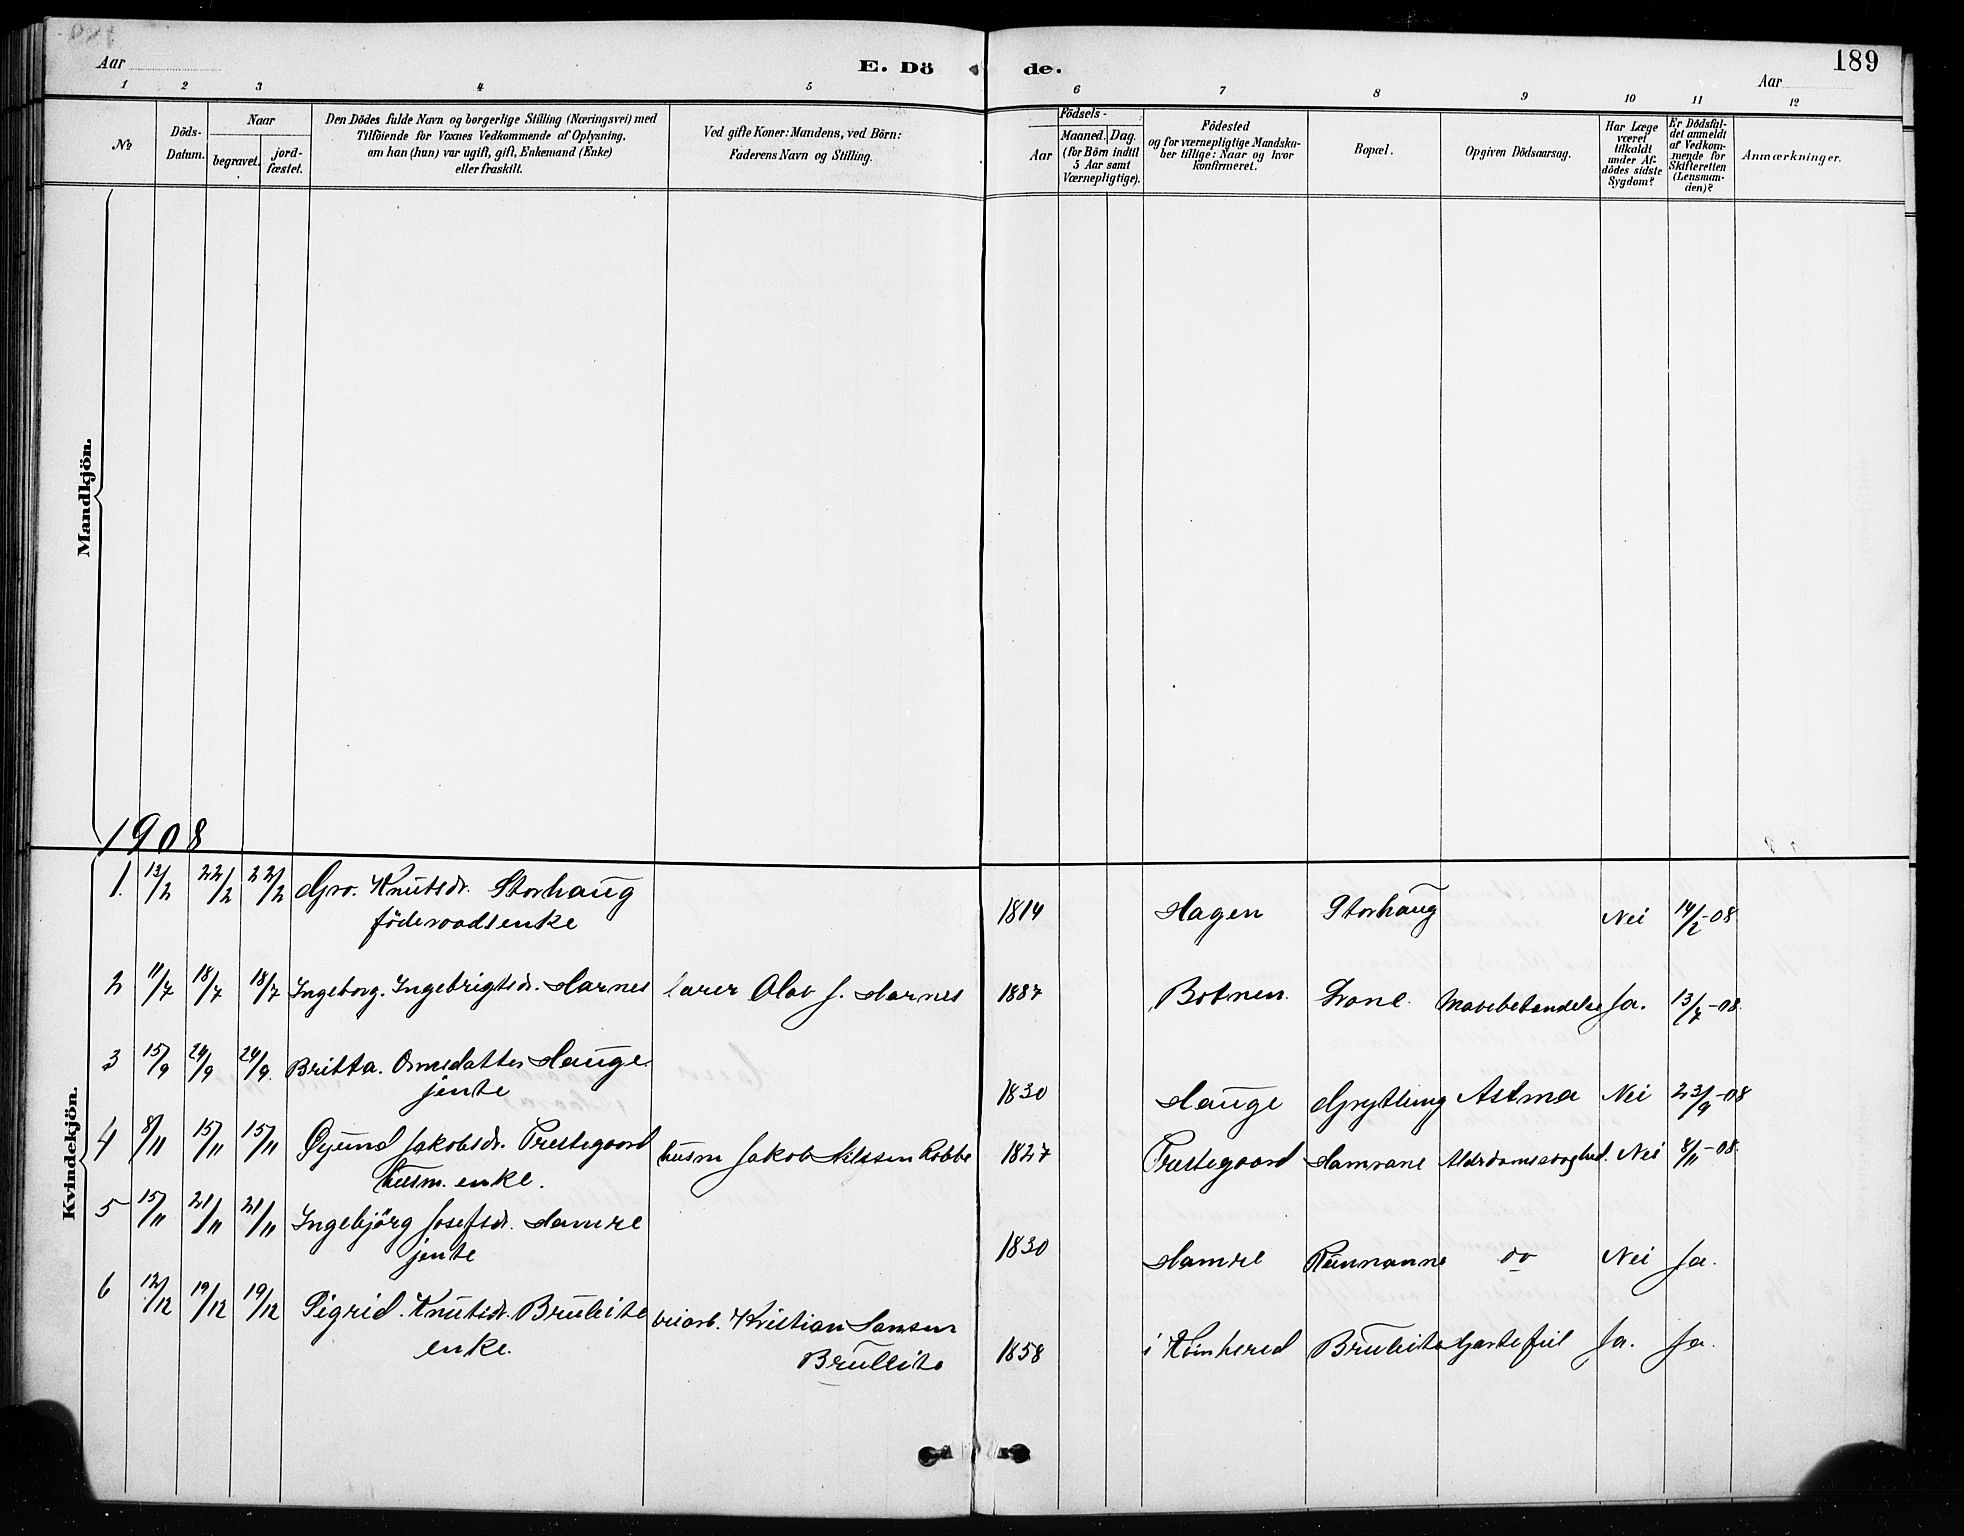 Aar
E. Dö
de.
Aar
189
1 2 3 4 5 6 7 8 9 10 11 12
№
Döds-
Datum.
Naar
begravet.
jord-
fæstet.
Den Dödes fulde Navn og borgerlige Stilling (Næringsvei) med
Tilföiende for Voxnes Vedkommende af Oplysning,
om han (hun) var ugift, gift, Enkemand (Enke)
eller fraskilt.
Ved gifte Koner: Mandens, ved Börn:
Faderens Navn og Stilling.
Födsels-
Aar
Maaned. Dag.
(for Börn indtil
5 Aar samt
Værnepligtige).
Födested
og for værnepligtige Mandska-
ber tillige: Naar og hvor
konfirmeret.
Bopæl.
Opgiven Dödsaarsag.
Har Læge
været
tilkaldt
under Af-
dödes sidste
Sygdom?
Er Dödsfal-
det anmeldt
af Vedkom-
mende for
Skifteretten
(Lensman-
den)?
Anmærkninger.
Mandkjön.
1908
Kvindekjön.
1. 13/2 22/2 22/2 Gro. Knutsdr. Storhaug 1814 Hagen Storhaug Nei 14/2-08
föderaadsenke
2 11/7 18/7 18/7 Ingeborg. Ingebrigtsdr. Harnes lærer Olav J. Harnes 1887 Botnen. Mavebetændelse Ja. 13/7-08.
3 15/9 24/9 24/9. Britta. Hauge 1830 Hauge Astma Nei 23/9-08
jente
4 8/11 15/11 15/11 Jakobsdr. Prestegaard husm Jakob Nilssen Kobbe 1827 Prestegaard Nei 8/11-08.
husm. enke.
5 15/11 21/11 21/11 Ingebjörg Josefsdr. Hamre 1830 Hamre do Nei Ja.
jente
6 12/12 19/12 19/12 Sigrid. Knutsdr. Bruleite veiarb. Kristian Hansen 1858 i Kvinherad Bruleite Ja. Ja.
enke. Bruleite